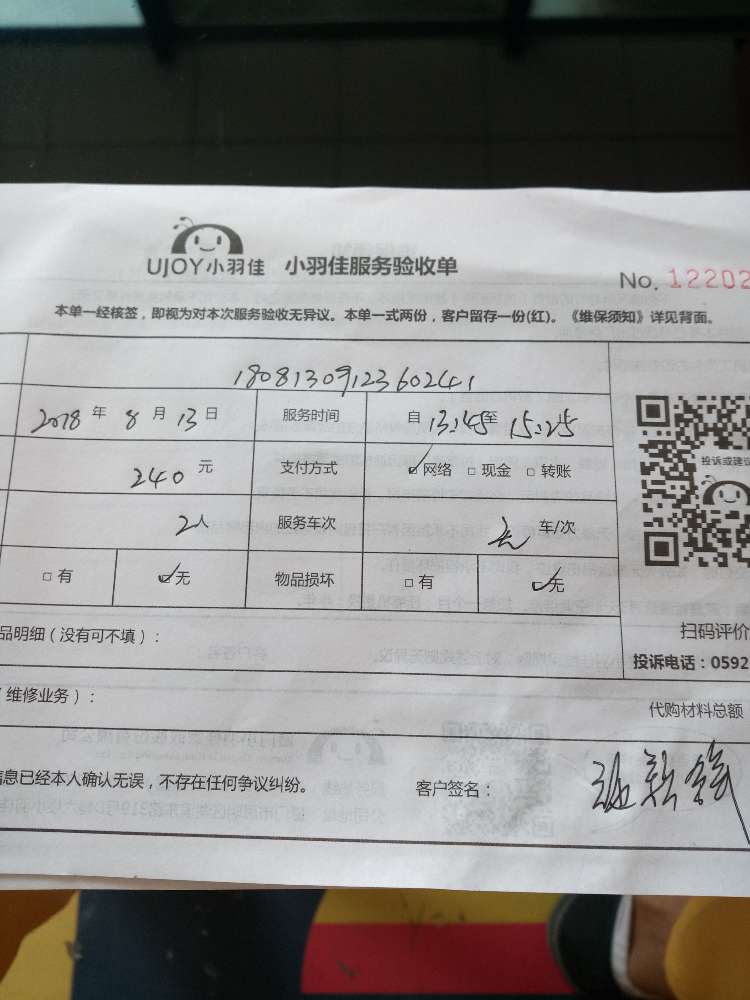 UJOY小羽佳 小羽佳服务验收单
No. 12202
本单一经核签，即视为对本次服务验收无异议。本单一式两份，客户留存一份(红)。《维保须知》详见背面。
18081309123602441
2018 年 8 月 13 日 服务时间 自 13:45 至 15:25 止
240 元 支付方式 ☑网络 □现金 □转账
投诉或建议
2人 服务车次 无 车/次
□有 ☑无 物品损坏 □有 ☑无
品明细（没有可不填）：
扫码评价
投诉电话：0592
维修业务）：
代购材料总额
信息已经本人确认无误，不存在任何争议纠纷。 客户签名：